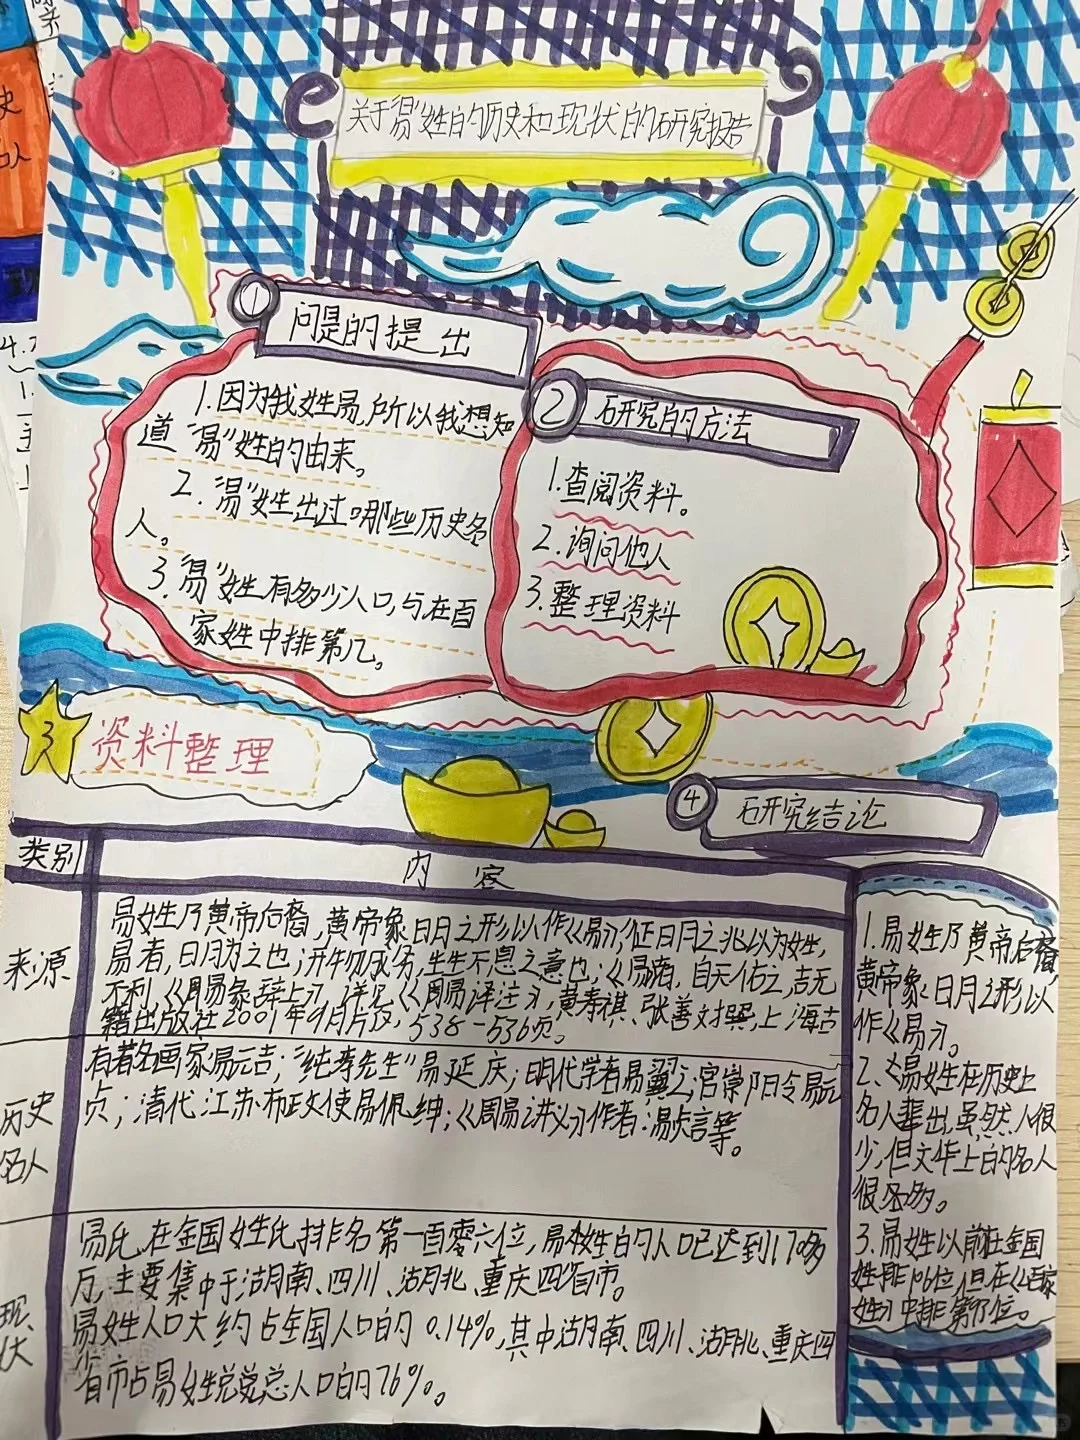 关于"易"姓的历史和现状的研究报告
1
问是的提出
1.因为我姓易,所以我想知
道"易"姓的由来。
2."易"姓出过哪些历史名
人。
3."易"姓有多少人口,与在百
家姓中排第几。
2
研究的方法
1.查阅资料。
2.询问他人
3.整理资料
3
资料整理
类别
内容
来源
易姓乃黄帝后裔,黄帝象日月之形以作《易》;征日月之兆以为姓,
易者,日月为之也;开物成务,生生不息之意也;《易》者,自天佑之,吉无
不利,《周易象辞上》,详见《周易译注》,黄寿祺、张善文撰,上海古
籍出版社2001年9月片仅,538-536页。
历史
名人
有著名画家易元吉;"纯孝先生"易延庆;明代学者易翼之;官崇阳令易元
贞;清代江苏布政使易佩绅;《周易讲义》作者:易贞言等。
现
状
易氏在全国姓氏排名第一百零六位,易姓的人口已达到170多
万,主要集中于湖南、四川、湖北、重庆四省市。
易姓人口大约占全国人口的0.14%,其中湖南、四川、湖北、重庆四
省市占易姓总人口的76%。
4
研究结论
1.易姓乃黄帝后裔,
黄帝象日月之形以
作《易》。
2、易姓在历史上
名人辈出,虽然人很
少,但文华上的名人
很多。
3.易姓以前在全国
姓排106位但在《百家
姓》中排第95位。